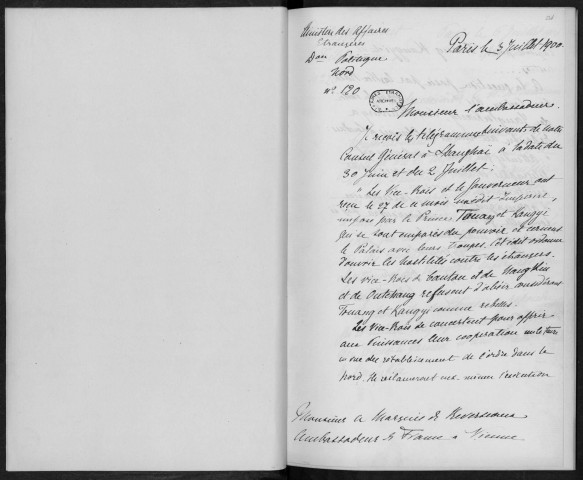 Ministère des Affaires
Etrangères
Don Politique
Nord
n° 120
Paris le 3 Juillet 1900
Monsieur l'ambassadeur
Je reçois les télégrammes suivants de notre
Consul Général à Shanghai à la date du
30 Juin et du 2 Juillet:
"Les Vice-Rois et le Gouverneur ont
reçu le 27 de ce mois un édit Impérial,
inspiré par le Prince Touang et Kangyi
qui se sont emparés du pouvoir et cernent
le Palais avec leurs troupes. Cet édit ordonne
d'ouvrir les hostilités contre les étrangers.
Les vice-Rois de Canton et de Nangkin
et de Outchang refusent d'obéir considérant
Touang et Kangyi comme rebelles.
Les Vice-Rois se concertent pour offrir
aux Puissances leur coopération militaire
en vue du rétablissement de l'ordre dans le
Nord. Ils réclameront une même l'exécution
Monsieur le Marquis de Reverseaux
Ambassadeur de France à Vienne